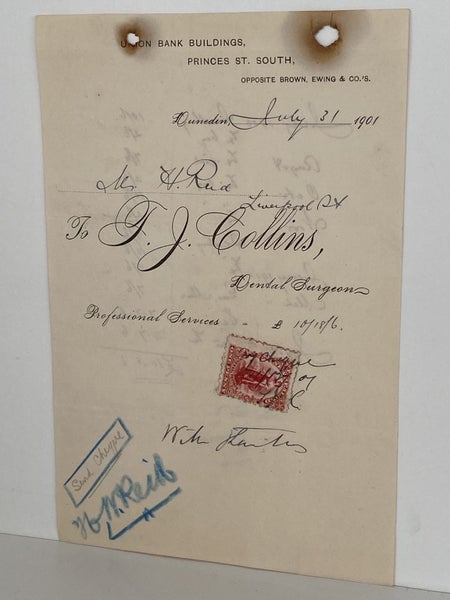 UNION BANK BUILDINGS,
PRINCES ST. SOUTH,
OPPOSITE BROWN, EWING & CO.'S.
Dunedin, July 31 1901
Mr H. Reid
Liverpool St
To F. J. Collins,
Dental Surgeon
Professional Services - £ 10/18/6.
By Cheque
With thanks
Send Cheque
H W Reid